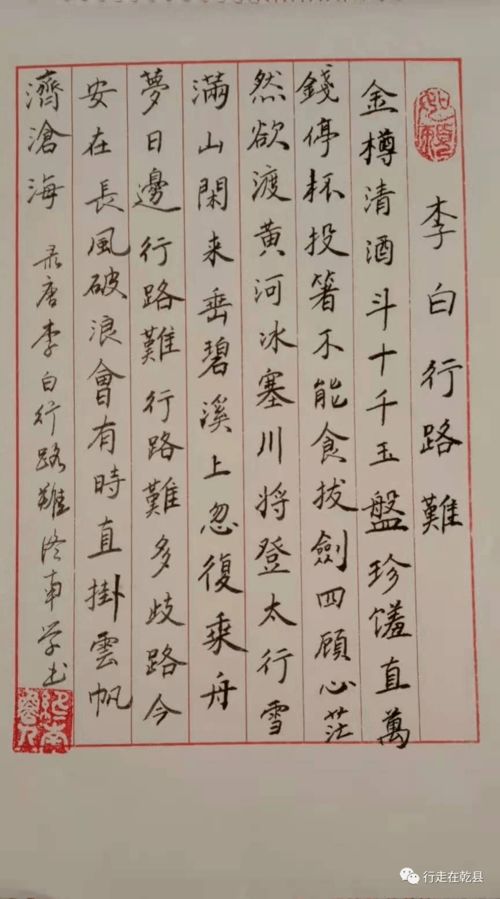 李白行路難
金樽清酒斗十千玉盤珍馐直萬
錢停杯投箸不能食拔劍四顧心茫
然欲渡黄河冰塞川將登太行雪
滿山閑来垂碧溪上忽復乘舟
夢日邊行路難行路難多歧路今
安在長風破浪會有時直掛雲帆
濟滄海
录唐李白行路難 学书
行走在乾县